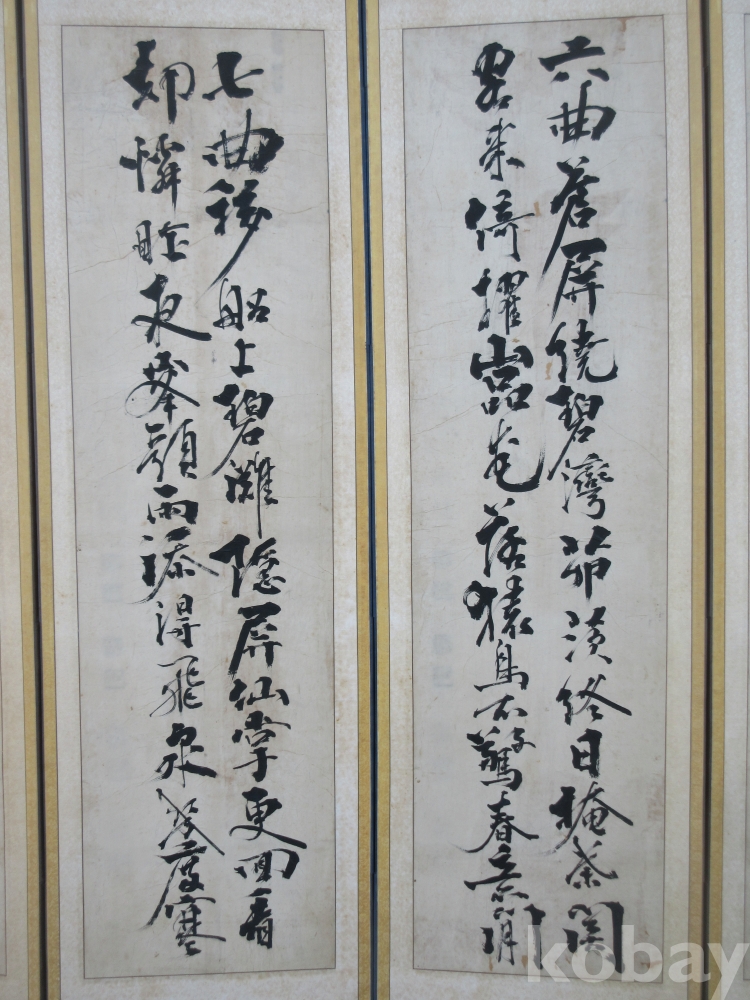 六曲蒼屏繞碧灣茆茨終日掩柴關
客來倚櫂嵓花落猿鳥不驚春意閒
七曲移船上碧灘隱屏仙掌更回看
却憐昨夜峯頭雨添得飛泉幾度寒
kobay